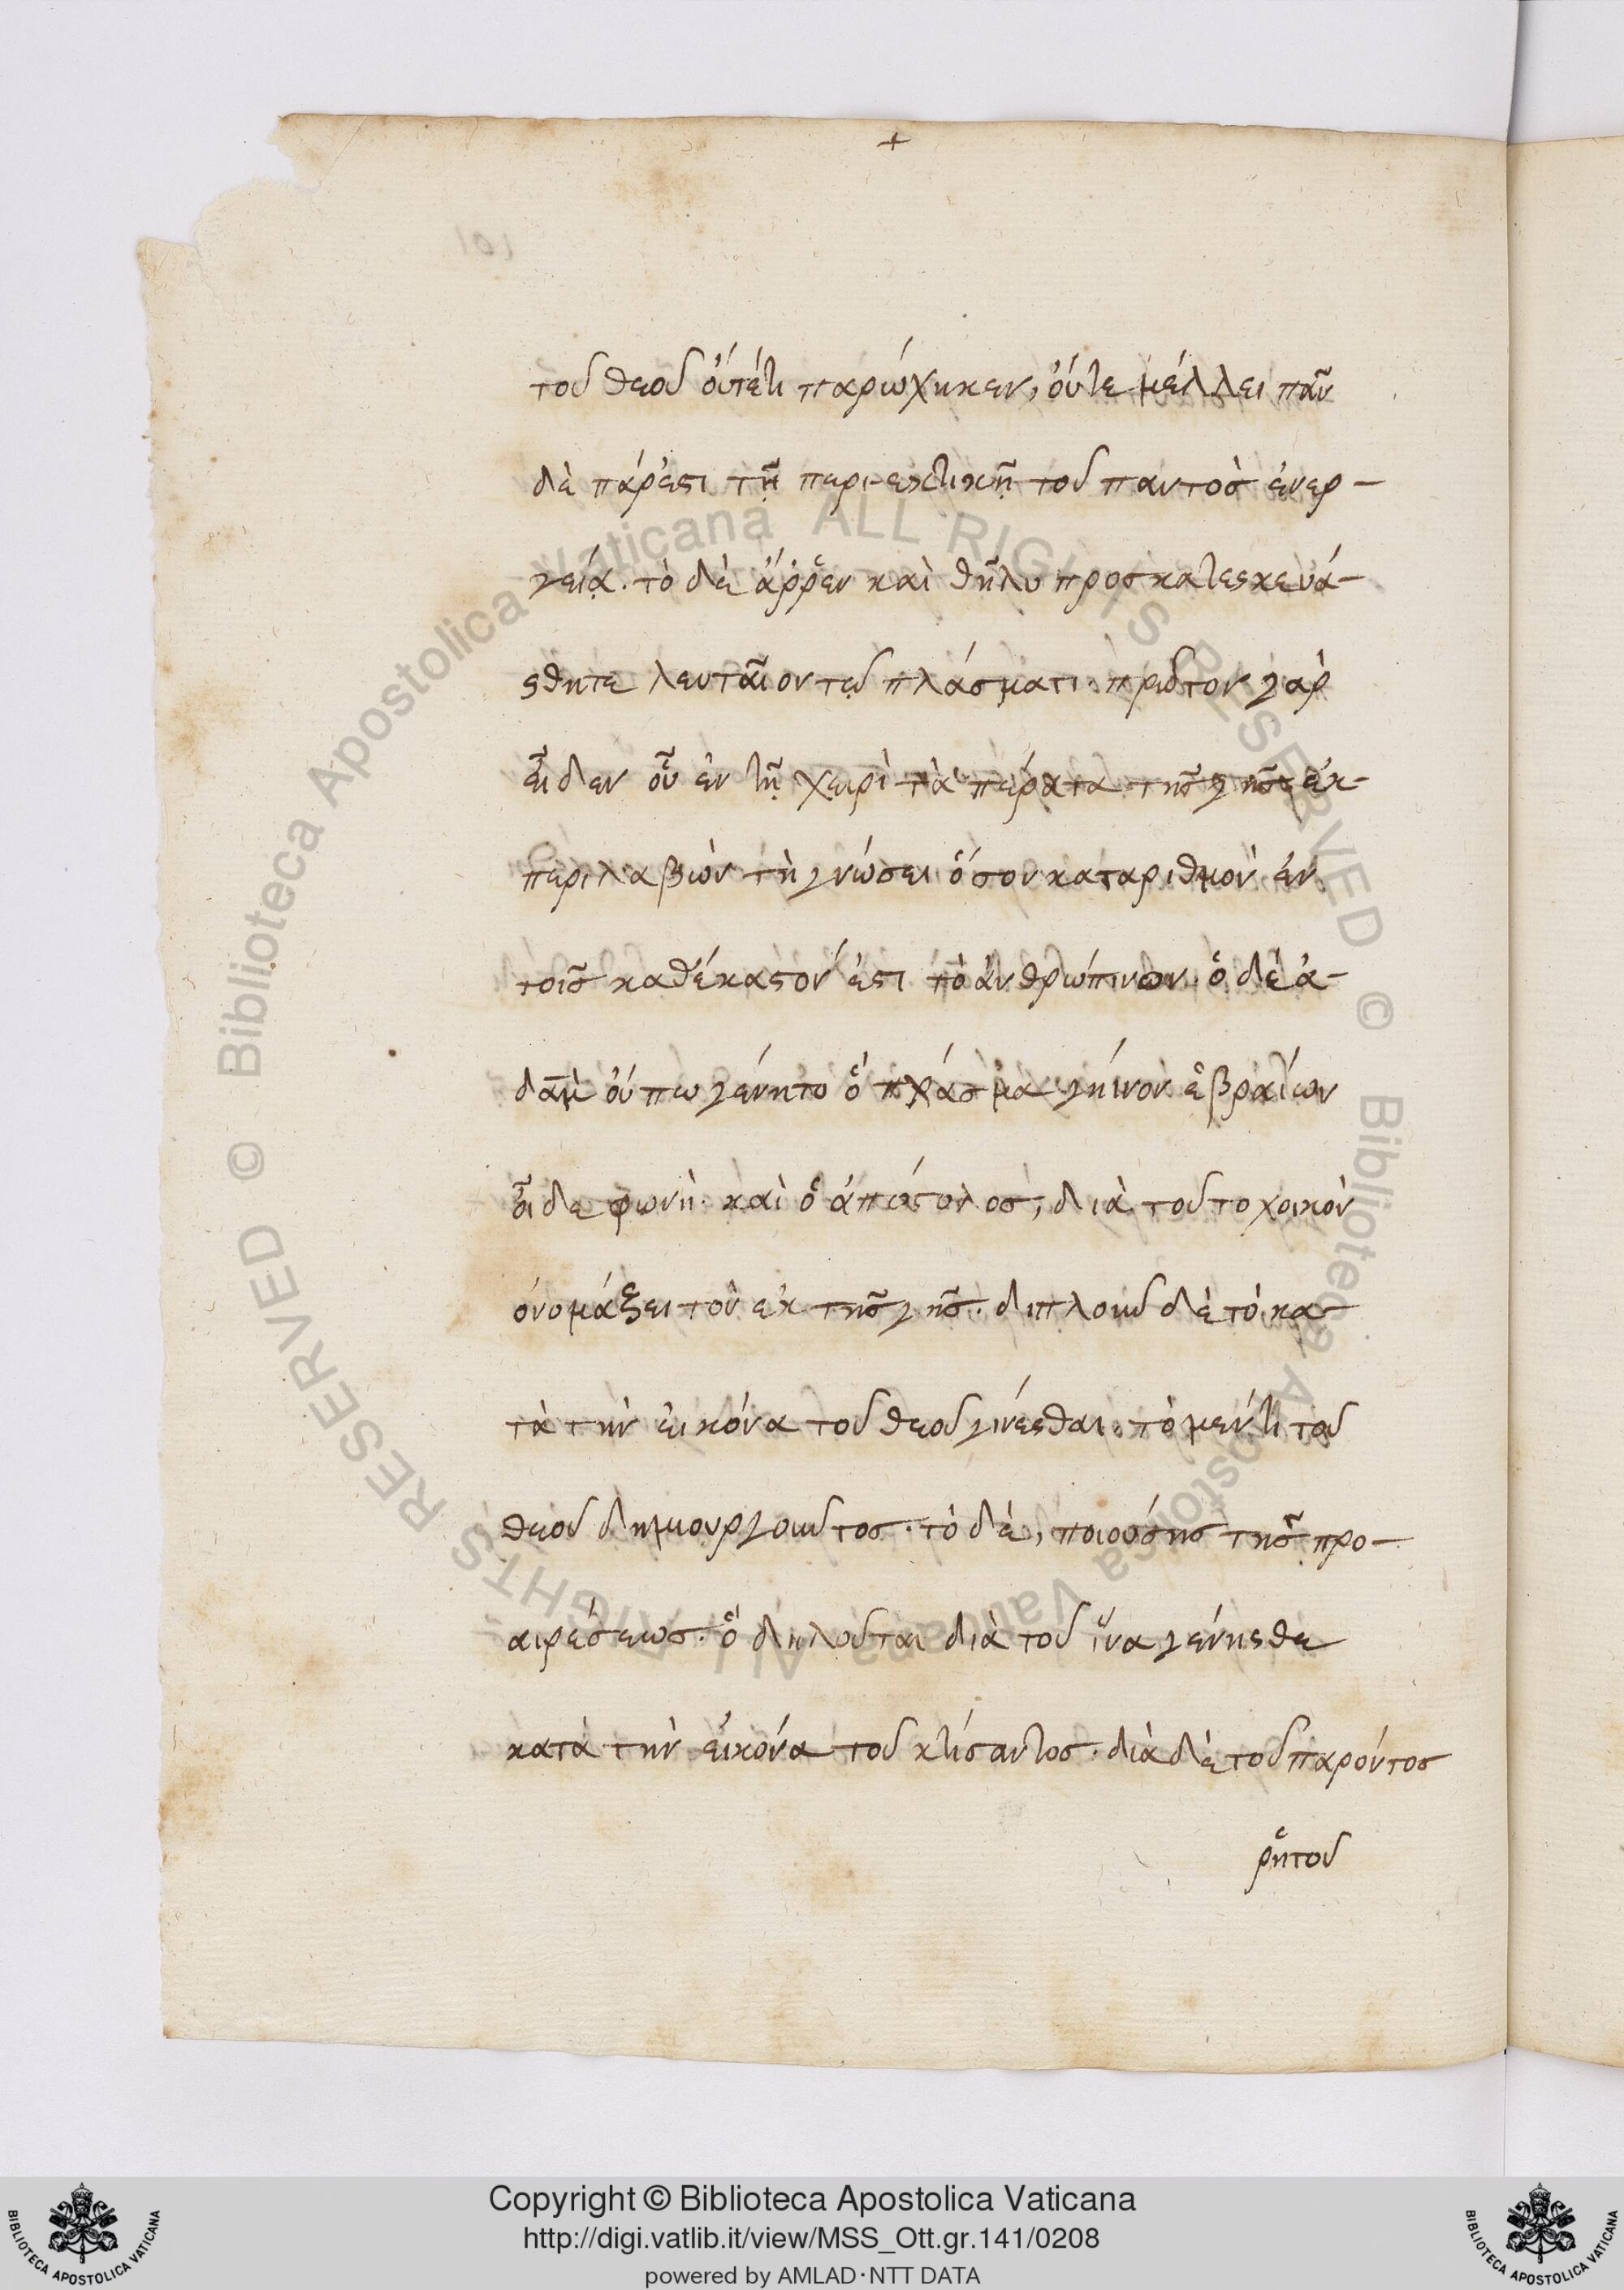 +
τοῦ θεοῦ ὀύτέτι παρώχηκεν, ὀύτε μέλλει πᾶν
δὲ πάρἐστι τῇ περι-εκτικῇ τοῦ παντὸσ ἐνερ-
γείᾳ. τὸ δὲ ἄῤῥεν καὶ θῆλυ προσκατεσκευά-
σθητε λευταῖον τῷ πλάσματι. πρῶτον γὰρ
εἶδεν οὗ ἐν τῇ χειρὶ τὰ πέρατα τῆσ γῆσ ἐκ-
περιλαβιὼν τῇ γνώσει ὅσον καταριθμὸν ἐν
τοῖσ καθέκαστόν ἐστι τὸ ἀνθρώπινων. ὁ δὲ ἀ-
δαμ ὀύπω γένητο ὅ πλάσμα γήινον ἑβραίων
οἷδε φωνὴ. καὶ ὁ ἀπόστολοσ, διὰ τοῦτο χοικὸν
ὀνομάξει τὸν εκ τῆσ γῆσ. διπλοῦν δὲ τὸ κα-
τὰ τὴν ἐικόνα τοῦ θεοῦ γινέεσθαι. τὸ μεν τι τοῦ
θεοῦ δημιουργουντοσ. τὸ δὲ, ποιούσησ τῆσ προ-
αιρέσεωσ. ὅ δηλοῦται διὰ τοῦ ἵνα γένησθε
κατὰ τὴν εἰκόνα τοῦ κτίσαντοσ. διὰ δὲ τοῦ παρόντοσ
ῥητοῦ
Copyright © Biblioteca Apostolica Vaticana
http://digi.vatlib.it/view/MSS_Ott.gr.141/0208
powered by AMLAD·NTT DATA
BIBLIOTECA APOSTOLICA VATICANA
BIBLIOTECA APOSTOLICA VATICANA
© Biblioteca Apostolica Vaticana ALL RIGHTS RESERVED
© Biblioteca Apostolica Vaticana ALL RIGHTS RESERVED